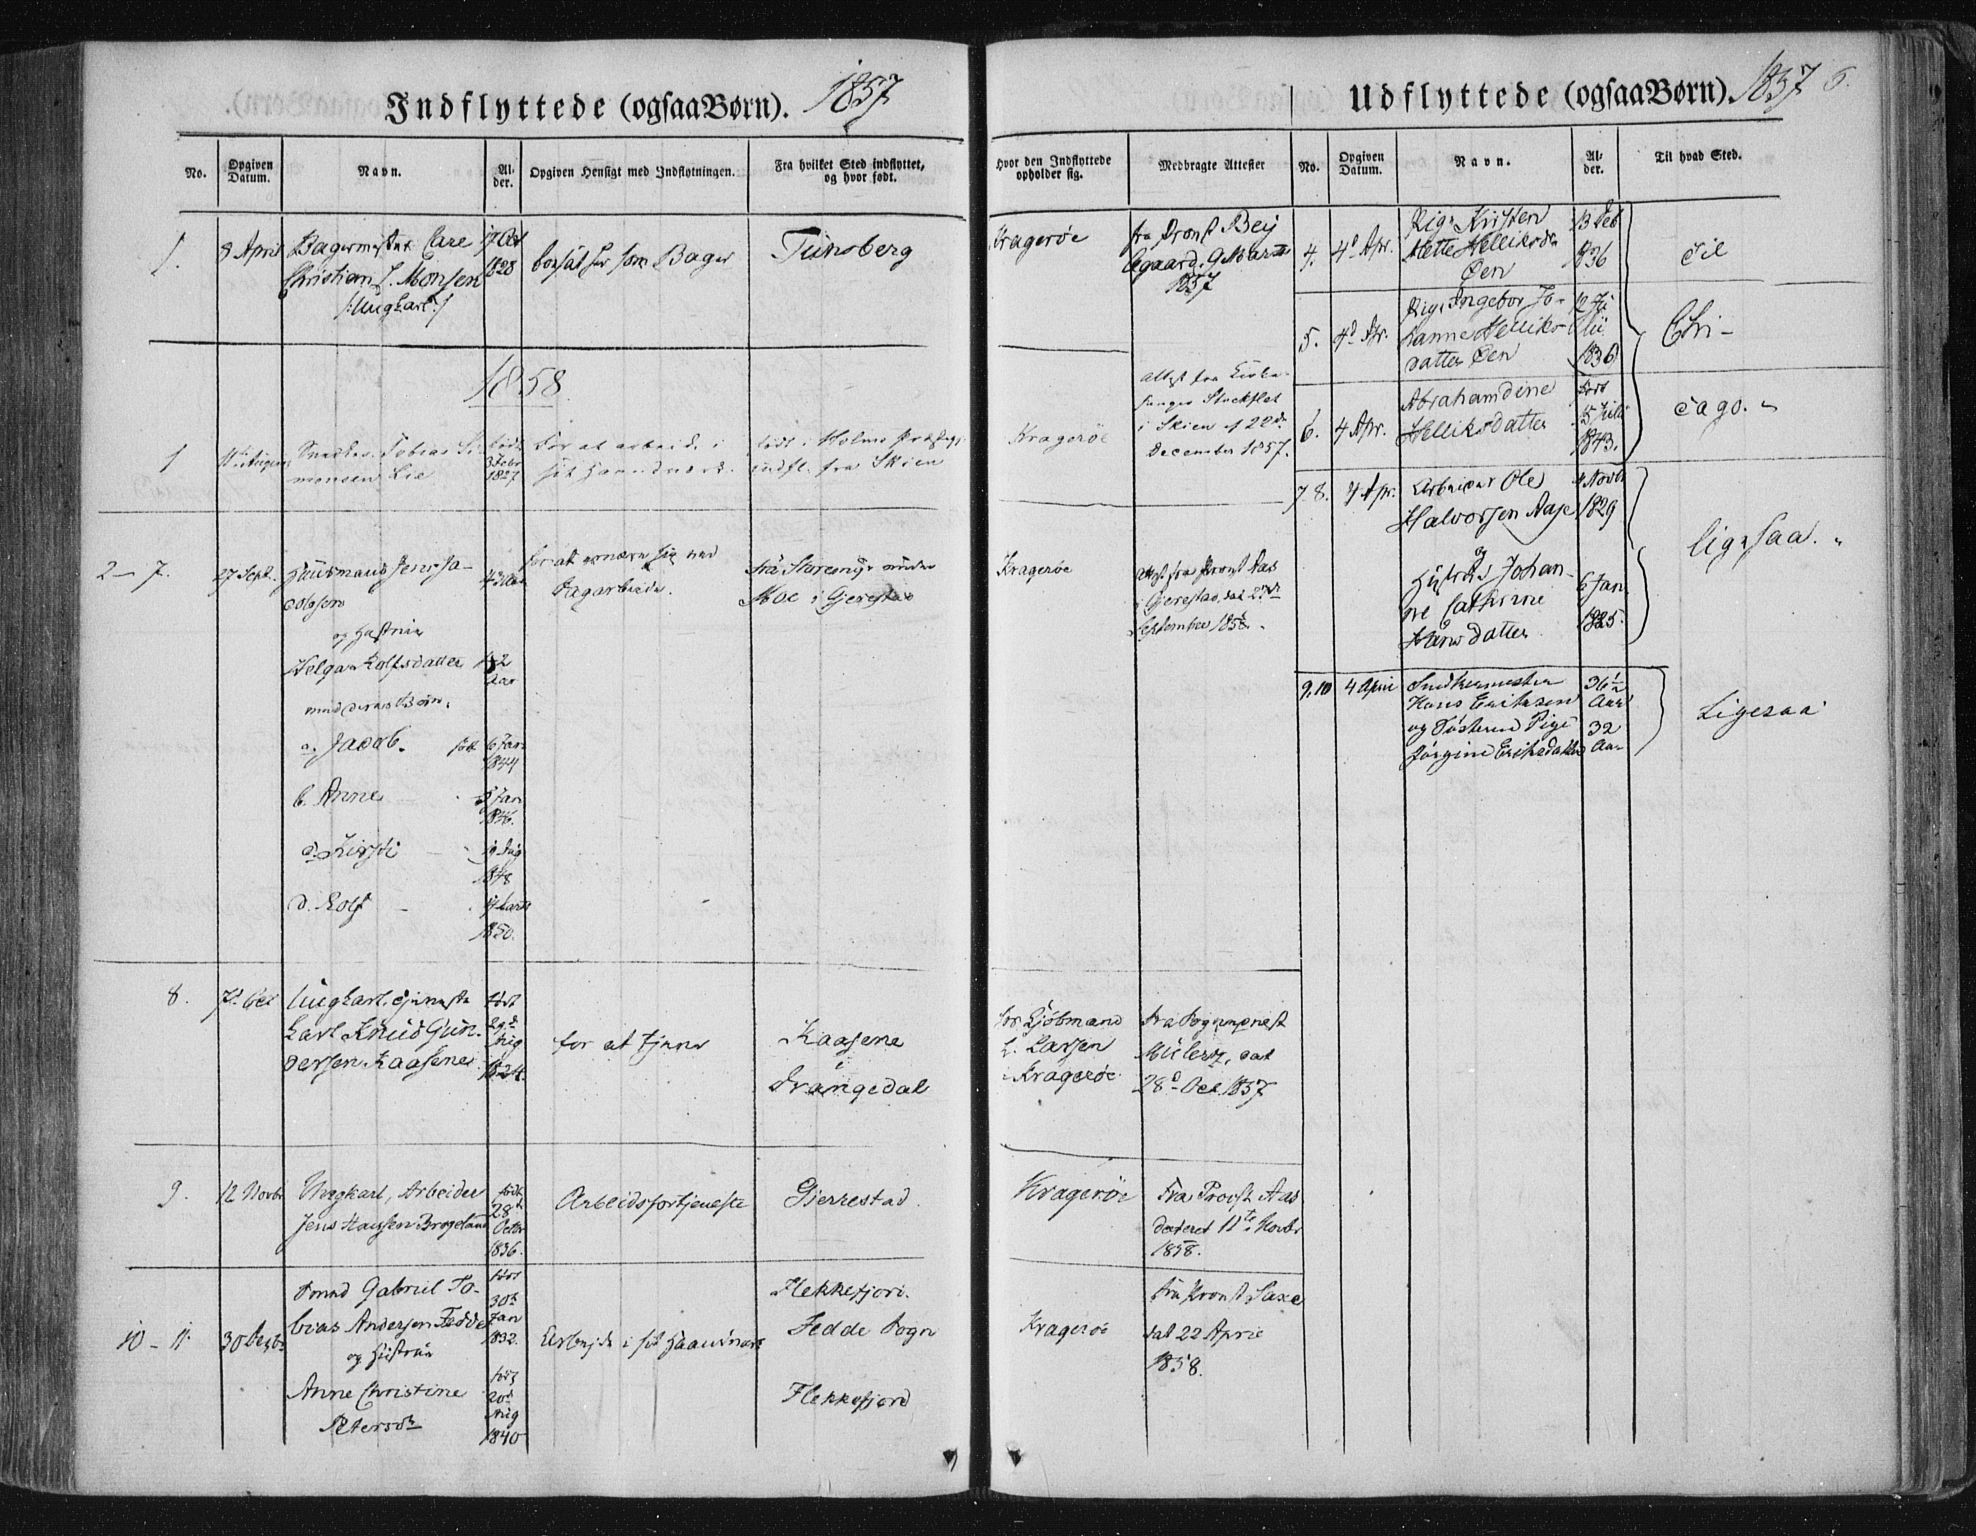 Indflyttede (ogsaa Børn). 1857
No.
Opgiven Datum.
Navn.
Al-der.
Opgiven Hensigt med Indflytningen.
Fra hvilket Sted indflyttet, og hvor født.
Hvor den Indflyttede opholder sig.
Medbragte Attester
1.
8 April
Bagermester Carl
Christian L. Monsen
/:Ungkarl:/
1828
som Bager
Tunsberg
Kragerøe
fra Provst Bej
1857
1858
1
Snedker Tobias Si-
monsen Lie
født
3 Febr
1827
For at arbeide i
sit Haandværk.
født i
indfl. fra Skien
Kragerøe
i Skien
December 1857.
2 — 7.
27 Sept.
Huusmand Jens Ja-
cobsen
og Hustrue
Helga Rolfsdatter
med deres Børn.
a. Jacob.
født 6 Jan
1844
b. Anne
5 Jan
1846.
c. Kirsti
19 Aug
1848
d. Rolf
1850.
For at ernære sig ved
Dagarbeide.
Moe i Gjerestad
Kragerøe
Attest fra Provst Aas
i Gjerestad, dat
September 1858.
8.
7d Oct
Ungkarl, tjeneste
Karl Knud Gun-
dersen Kaasene
født
29d
Aug
1824.
for at tjene
Kaasene
i
Drangedal
hos Kjøbmand
L. Larsen
i Kragerøe
fra Sognepræst
28d Oct. 1857
9.
12 Novbr
Ungkarl, Arbeider
Jens Hansen Brogeland
født
28d
Octbr
1836.
Arbeidsfortjeneste
Gjerrestad.
Kragerøe
Fra Provst Aas
dateret 11te Novbr
1858.
10 — 11
30
Smed Gabriel To-
bias Andersen Fedde
og Hustrue
Anne Christine
Petersdr
født
30d
Jan
1832.
født
20d
Aug
1840
Arbejde i sit Haandværk
Flekkefjord.
Fedde Sogn
Flekkefjord
Kragerøe
fra Provst Saxe
dat 22 April
1858.
Udflyttede (ogsaa Børn). 1857
6.
No.
Opgiven Datum.
Navn.
Al-der.
Til hvad Sted.
4.
4d Apr.
Pige Kirsten
Mette Helliksdr
Øen
13 Feb
1836
5.
4d Apr.
Pige Ingebor Jo-
hanne Helliks-
datter Øen
1836
6.
4 Apr.
Abrahamdine
Helliksdatter
født
1843.
Til
Chi-
cago.
7-8.
4 Apr.
Arbeider Ole
Halvorsen Aase
og
Hustrue Johan-
ne Cathrine
Hansdatter
4 Novbr
1829
6 Jan
1825.
ligesaa.
9.10
4 April
Snedkermester
Hans Eriksen
og Søsteren Pige
Jørgine Eriksdatter
36½
Aar
32
Aar
Ligesaa